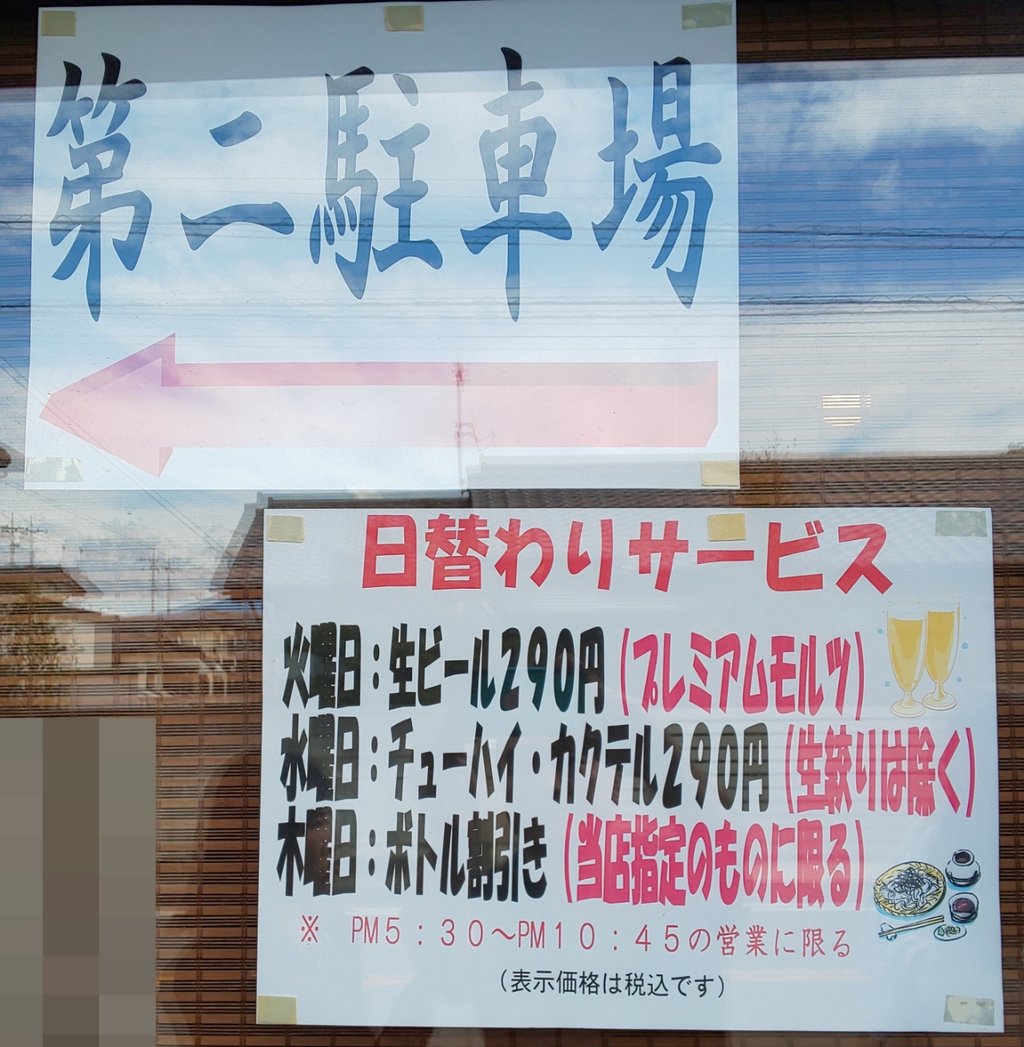 第二駐車場
日替わりサービス
火曜日：生ビール290円（プレミアムモルツ）
水曜日：チューハイ・カクテル290円（生絞りは除く）
木曜日：ボトル割引き（当店指定のものに限る）
※ PM5：30～PM10：45の営業に限る
（表示価格は税込です）